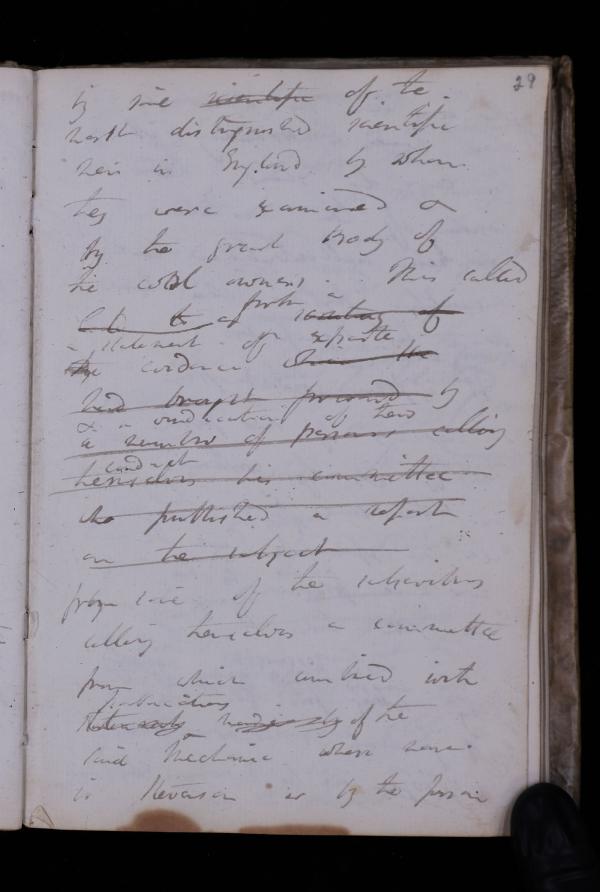 29
by some scientific of the
most distinguished scientific
men in England by whom
they were examined &
by the great body of
the coal owners. This called
forth a
meeting of
a statement of exparte
the evidence
had brought forward by
& a vindication of their
a number of persons calling
conduct
themselves his committee
who published a report
on the subject
from some of the subscribers
calling themselves a committee
from which combined with
publications
of the
said Mechanic whose name
is Stevenson or by the person